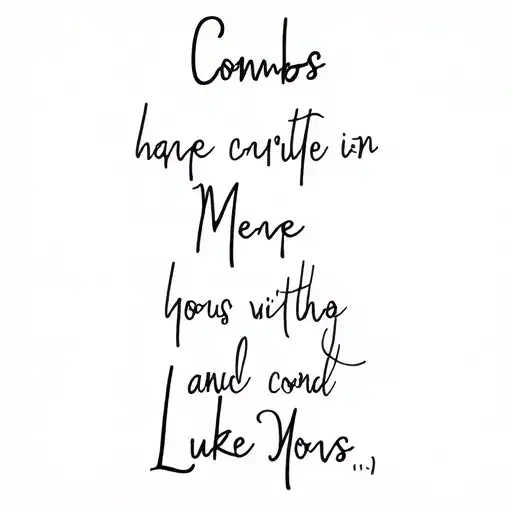 Conmbs
hape curitte in
Menpe
hous vitthg
and cond
Luke Yous...